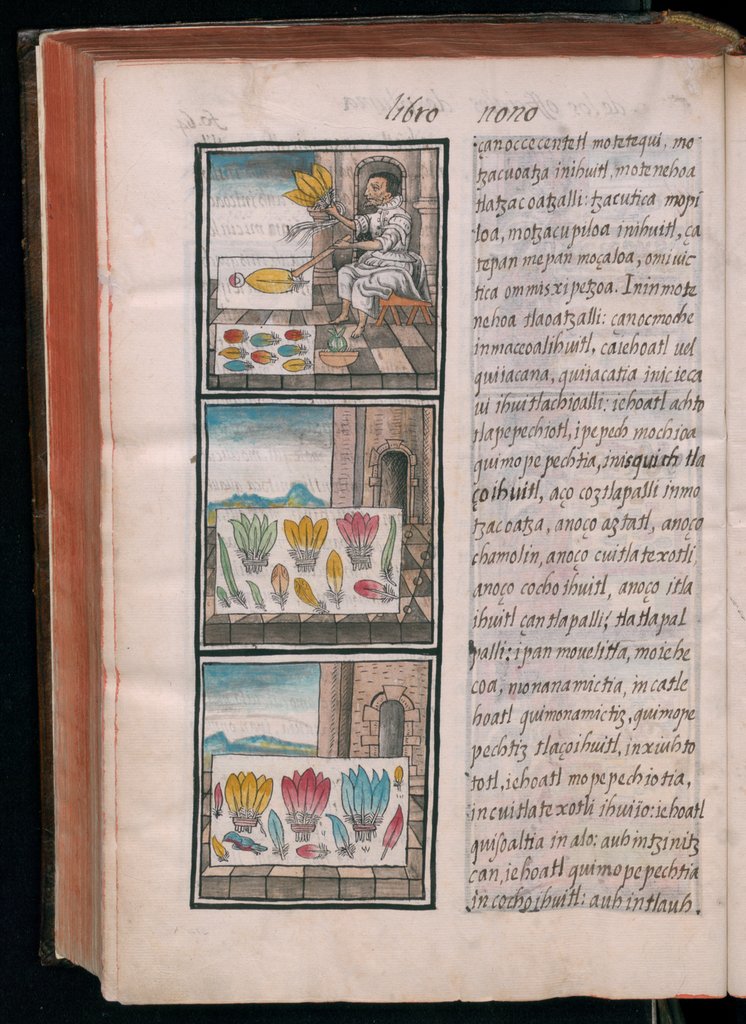 libro nono
canoccecentetl motetequi, mo
tzacuoatza inihuitl, motenehoa
tlatzacoatzalli: tzacutica mopi
loa, motzacupiloa inihuitl, ça
tepan mepan moçaloa, omivic
tica ommisxipetzoa. Ininmote
nehoa tlaoatzalli: canocmoche
inmaceoalihuitl, caiehoatl vel
quijacana, quijacatia inicieca
ui ihuitlachioalli: iehoatl achto
tlapepechiotl, ipepech mochioa
quimopepechtia, inisquich tla
çoihuitl, aço coztlapalli inmo
tzacoatza, anoço aztatl, anoço
chamolin, anoço cuitlatexotli,
anoço cochoihuitl, anoço itla
ihuitl çantlapalli, tlatlapal
palli: ipan mouelitla, moiehe
coa, monanamictia, in catle
hoatl quimonamictiz, quimope
pechtiz tlaçoihuitl, inxiuhto
totl, iehoatl mopepechiotia,
incuitlatexotli ihuijo: iehoatl
quisoaltia in alo: auh intzinitz
can, iehoatl quimopepechtia
in cochoihuitl: auh intlauh